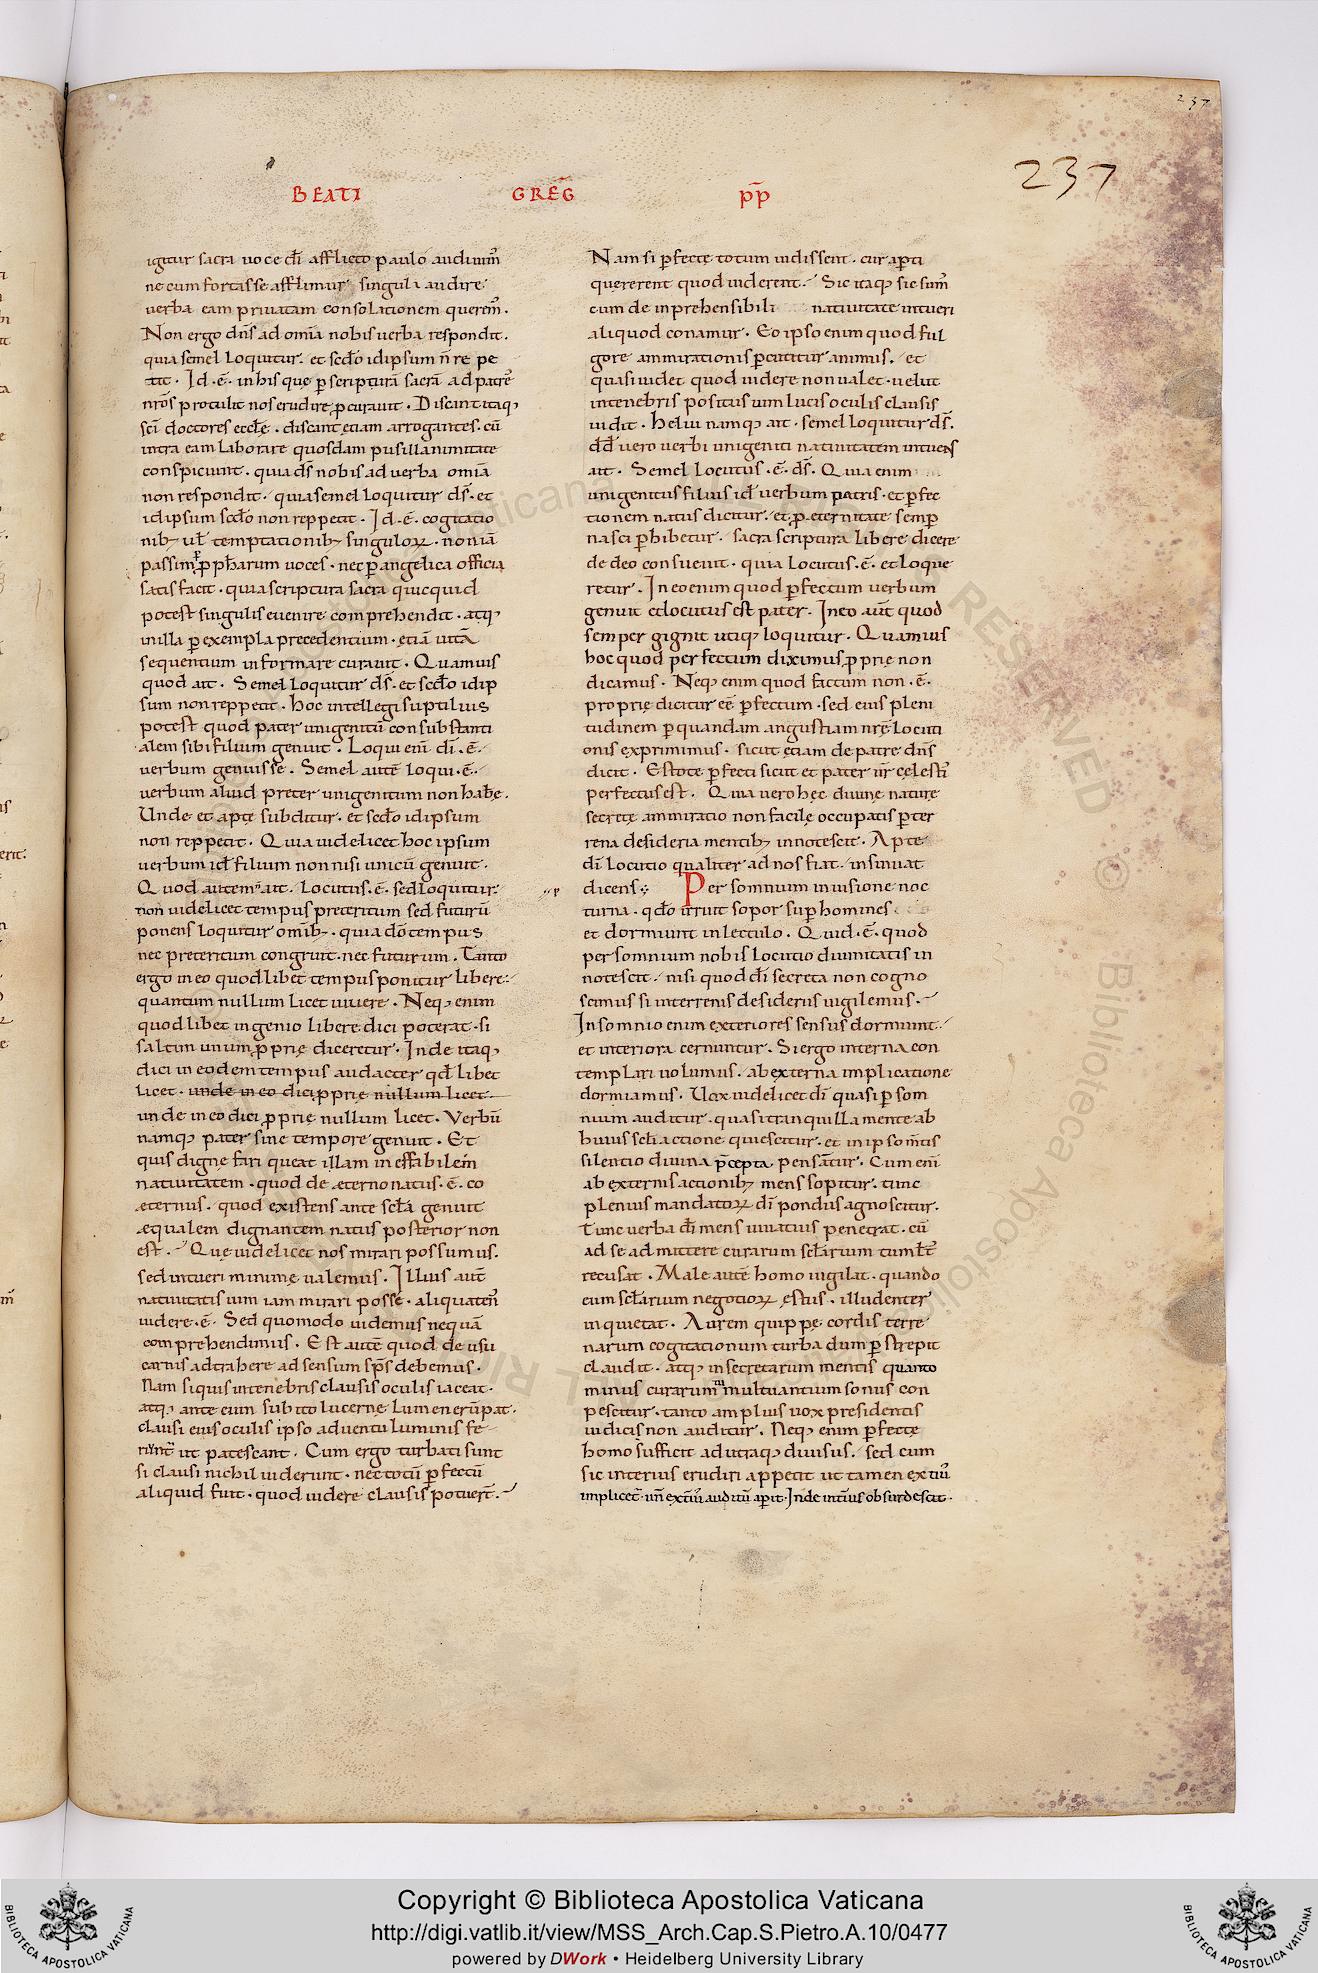 237
237
BEATI GREG̅ P̅P
igitur sacra uoce dī afflicto paulo audiuim̅
ne cum fortasse affligimur singuli audire
uerba eam priuatam consolationem querem̅.
Non ergo dn̅s ad omīa nobis uerba respondit.
quia semel loquitur. et scd̅o idipsum n̅ repe
tit. Id .ē. in his quę p̲ scripturā sacrā ad patrē
nr̅os protulit nos erudire p̲curauit. Discant itaq;
sc̅i doctores eccl̅ę. discant etiam arrogantes. cū
intra eam laborare quosdam pusillanimitate
conspiciunt. quia ds̅ nobis ad uerba omīa
non respondit. quia semel loquitur ds̅. et
idipsum scd̅o non reppetit. Id .ē. cogitatio
nib; ul̅ temptationib; singuloꝝ. non iā
passim p̲ pph̅arum uoces. nec p̲ angelica officia
satisfacit. quia scriptura sacra quicquid
potest singulis euenire comprehendit. atq;
in illa p̲ exempla precedentium. etiā uitā
sequentium informare curauit. Quamuis
quod ait. Semel loquitur ds̅. et scd̅o idip
sum non reppetit. hoc intellegi suptilius
potest quod pater unigenitū consubstanti
alem sibi filium genuit. Loqui eni̅ dī .ē.
uerbum genuisse. Semel autē loqui .ē.
uerbum aliud preter unigenitum non habe̅.
Unde et apte subditur. et scd̅o idipsum
non reppetit. Quia uidelicet hoc ipsum
uerbum id̅ filium non nisi unicū genuit.
Quod autem ait. locutus .ē. sed loquitur:
non uidelicet tempus preteritum sed futurū
ponens loquitur omib;. quia dō tempus
nec preteritum congruit. nec futurum. Tanto
ergo in eo quodlibet tempus ponitur libere:
quantum nullum licet uiuere. Neq; enim
quodlibet ingenio libere dici poterat. si
saltim unum p̲prię diceretur. Inde itaq;
dici in eodem tempus audacter qd̅ libet
licet. unde in eo dici p̲prię nullum licet.
unde in eo dici p̲prię nullum licet. Verbū
namq; pater sine tempore genuit. Et
quis digne fari queat illam ineffabilem
natiuitatem. quod de æterno natus .ē. co
æternus. quod existens ante scl̅a genuit
æqualem dignantem natus posterior non
est. Quę uidelicet nos mirari possumus.
sed intueri minime ualemus. Illius aut̅
natiuitatis uim iam mirari posse. aliquaten̅
uidere .ē. Sed quomodo uidemus nequā
comprehendimus. Est autē quod de usu
carnis adtrahere ad sensum sps̅ debemus.
Nam si quis in tenebris clausis oculis iaceat.
atq; ante eum subito lucernę lumen erūpat.
clausi eius oculis ipso aduentu luminis fe
riunt̅ ut patescant. Cum ergo turbati sunt
si clausi nichil uiderunt. nec totū p̲fectū
aliquid fuit. quod uidere clausis potuer̅t.
Nam si p̲fecte totum uidissent. cur ap̲ti
quererent quod uiderent. Sic itaq; sic sum̅
cum de inprehensibili natiuitate intueri
aliquod conamur. Eo ipso enim quod ful
gore ammirationis p̲cutitur animus. et
quasi uidet quod uidere non ualet. uelut
in tenebris positus uim lucis oculis clausis
uidit. Heliu namq; ait. semel loquitur ds̅.
dd̅ uero uerbi unigeniti natiuitatem intuens
ait. Semel locutus .ē. ds̅. Quia enim
unigenitus filius id̅ uerbum patris. et p̲fec
tionem natus dicitur. et p̲ eternitate semp̲
nasci p̲hibetur. sacra scriptura libere dicere
de deo consueuit. quia locutus .ē. et loque
retur. In eo enim quod p̲fectum uerbum
genuit et locutus est pater. In eo aut̅ quod
semper gignit utiq; loquitur. Quamuis
hoc quod perfectum diximus p̲prię non
dicamus. Neq; enim quod factum non .ē.
proprię dicitur eē p̲fectum. sed eius pleni
tudinem p̲ quandam angustiam nrę̅ locuti
onis exprimimus. sicut etiam de patre dn̅s
dicit. Estote p̲fecti sicut et pater ur̅ celestī
perfectus est. Quia uero hęc diuine naturę
secretę ammiratio non facile occupatis p̲ ter
rena desideria mentib; innotescit. Apte
dī locutio qualiter ad nos fiat. insinuat
dicens: Per somnium in uisione noc
turna. qd̅o irruit sopor sup̲ homines
et dormiunt in lectulo. Quid .ē. quod
per somnium nobis locutio diuinitatis in
notescit. nisi quod dī secreta non cogno
scimus si in terrenis desideriis uigilemus.
In somnio enim exteriores sensus dormiunt.
et interiora cernuntur. Si ergo interna con
templari uolumus. ab externa implicatione
dormiamus. Uox uidelicet dī quasi p̲ som
nium auditur. quasi tranquilla mente ab
huius scl̅i actione quiescitur. et in ipso m̅tis
silentio diuina pr̅cepta pensātur. Cum eni̅
ab externis actionib; mens sopitur. tunc
plenius mandatoꝝ dī pondus agnoscitur.
Tunc uerba dī mens uiuatius penetrat. cū
ad se admittere curarum scl̅arium tumlt̅
recusat. Male autē homo uigilat. quando
eum scl̅arium negotioꝝ ęstus. illudenter
inquietat. Aurem quippe cordis terre
narum cogitationum turba dum p̲strepit
claudit. atq; in secretarum mentis quanto
minus curarum tumultuantium sonus con
pescitur. tanto amplius uox presidentis
iudicis non auditur. Neq; enim p̲fecte
homo sufficit ad utraq; diuisus. sed cum
sic interius erudiri appetit ut tamen exteriū
implicet̅. un̅ exteriū auditū ap̲it. Inde interius obsurdescit.
Copyright © Biblioteca Apostolica Vaticana
http://digi.vatlib.it/view/MSS_Arch.Cap.S.Pietro.A.10/0477
powered by DWork • Heidelberg University Library
BIBLIOTECA APOSTOLICA VATICANA
BIBLIOTECA APOSTOLICA VATICANA